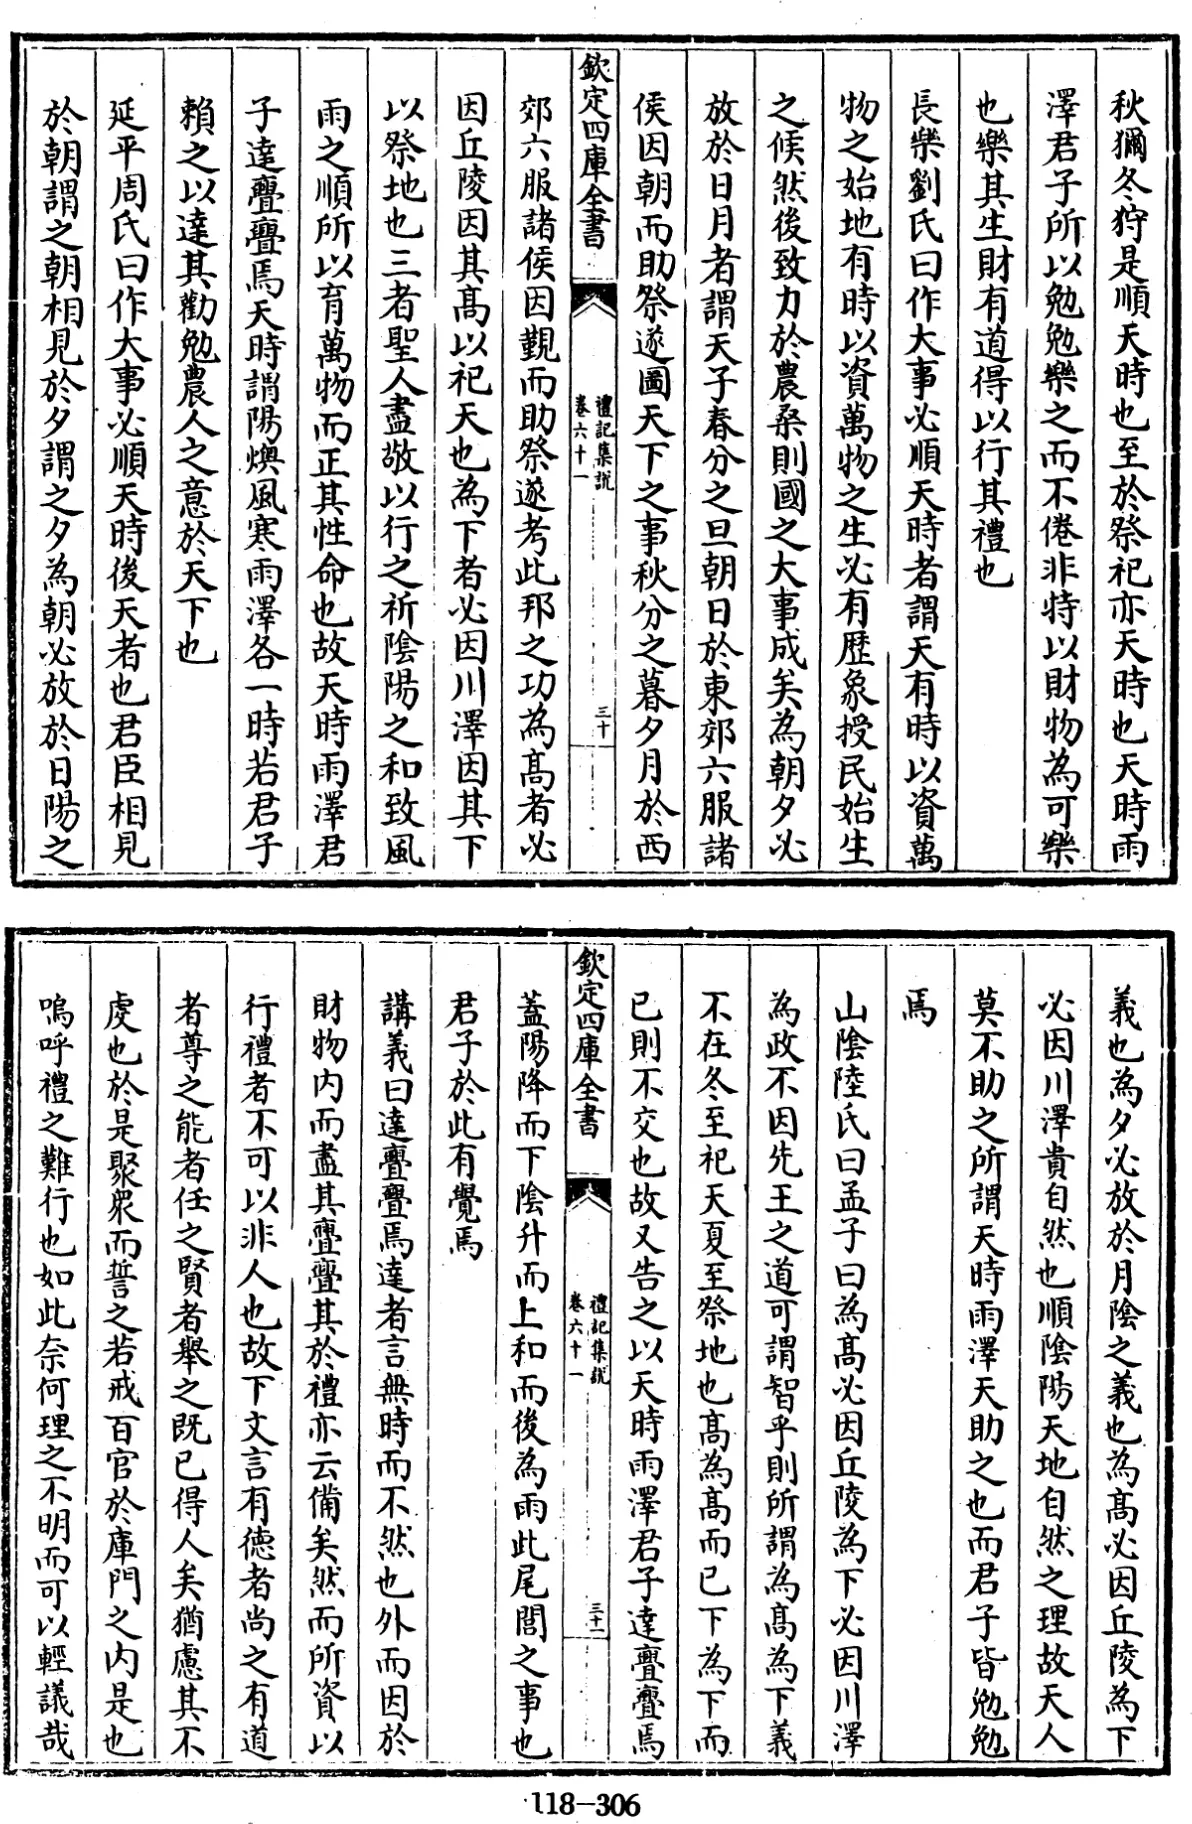 秋獮冬狩是順天時也至於祭祀亦天時也天時雨
澤君子所以勉勉樂之而不倦非特以財物為可樂
也樂其生財有道得以行其禮也
長樂劉氏曰作大事必順天時者謂天有時以資萬
物之始地有時以資萬物之生必有歴象授民始生
之候然後致力於農桑則國之大事成矣為朝夕必
放於日月者謂天子春分之旦朝日於東郊六服諸
侯因朝而助祭遂圖天下之事秋分之暮夕月於西
欽定四庫全書
禮記集說
卷六十一
三十
郊六服諸侯因覲而助祭遂考此邦之功為髙者必
因丘陵因其髙以祀天也為下者必因川澤因其下
以祭地也三者聖人盡敬以行之祈隂陽之和致風
雨之順所以育萬物而正其性命也故天時雨澤君
子達亹亹焉天時謂陽燠風寒雨澤各一時若君子
賴之以達其勸勉農人之意於天下也
延平周氏曰作大事必順天時後天者也君臣相見
於朝謂之朝相見於夕謂之夕為朝必放於日陽之
義也為夕必放於月隂之義也為髙必因丘陵為下
必因川澤貴自然也順隂陽天地自然之理故天人
莫不助之所謂天時雨澤天助之也而君子皆勉勉
焉
山隂陸氏曰孟子曰為髙必因丘陵為下必因川澤
為政不因先王之道可謂智乎則所謂為髙為下義
不在冬至祀天夏至祭地也髙為髙而已下為下而
已則不交也故又告之以天時雨澤君子達亹亹焉
欽定四庫全書
禮記集說
卷六十一
三十一
蓋陽降而下隂升而上和而後為雨此尾閭之事也
君子於此有覺焉
講義曰達亹亹焉達者言無時而不然也外而因於
財物内而盡其亹亹其於禮亦云備矣然而所資以
行禮者不可以非人也故下文言有德者尚之有道
者尊之能者任之賢者舉之既已得人矣猶慮其不
虔也於是聚衆而誓之若戒百官於庫門之内是也
嗚呼禮之難行也如此奈何理之不明而可以輕議哉
118-306